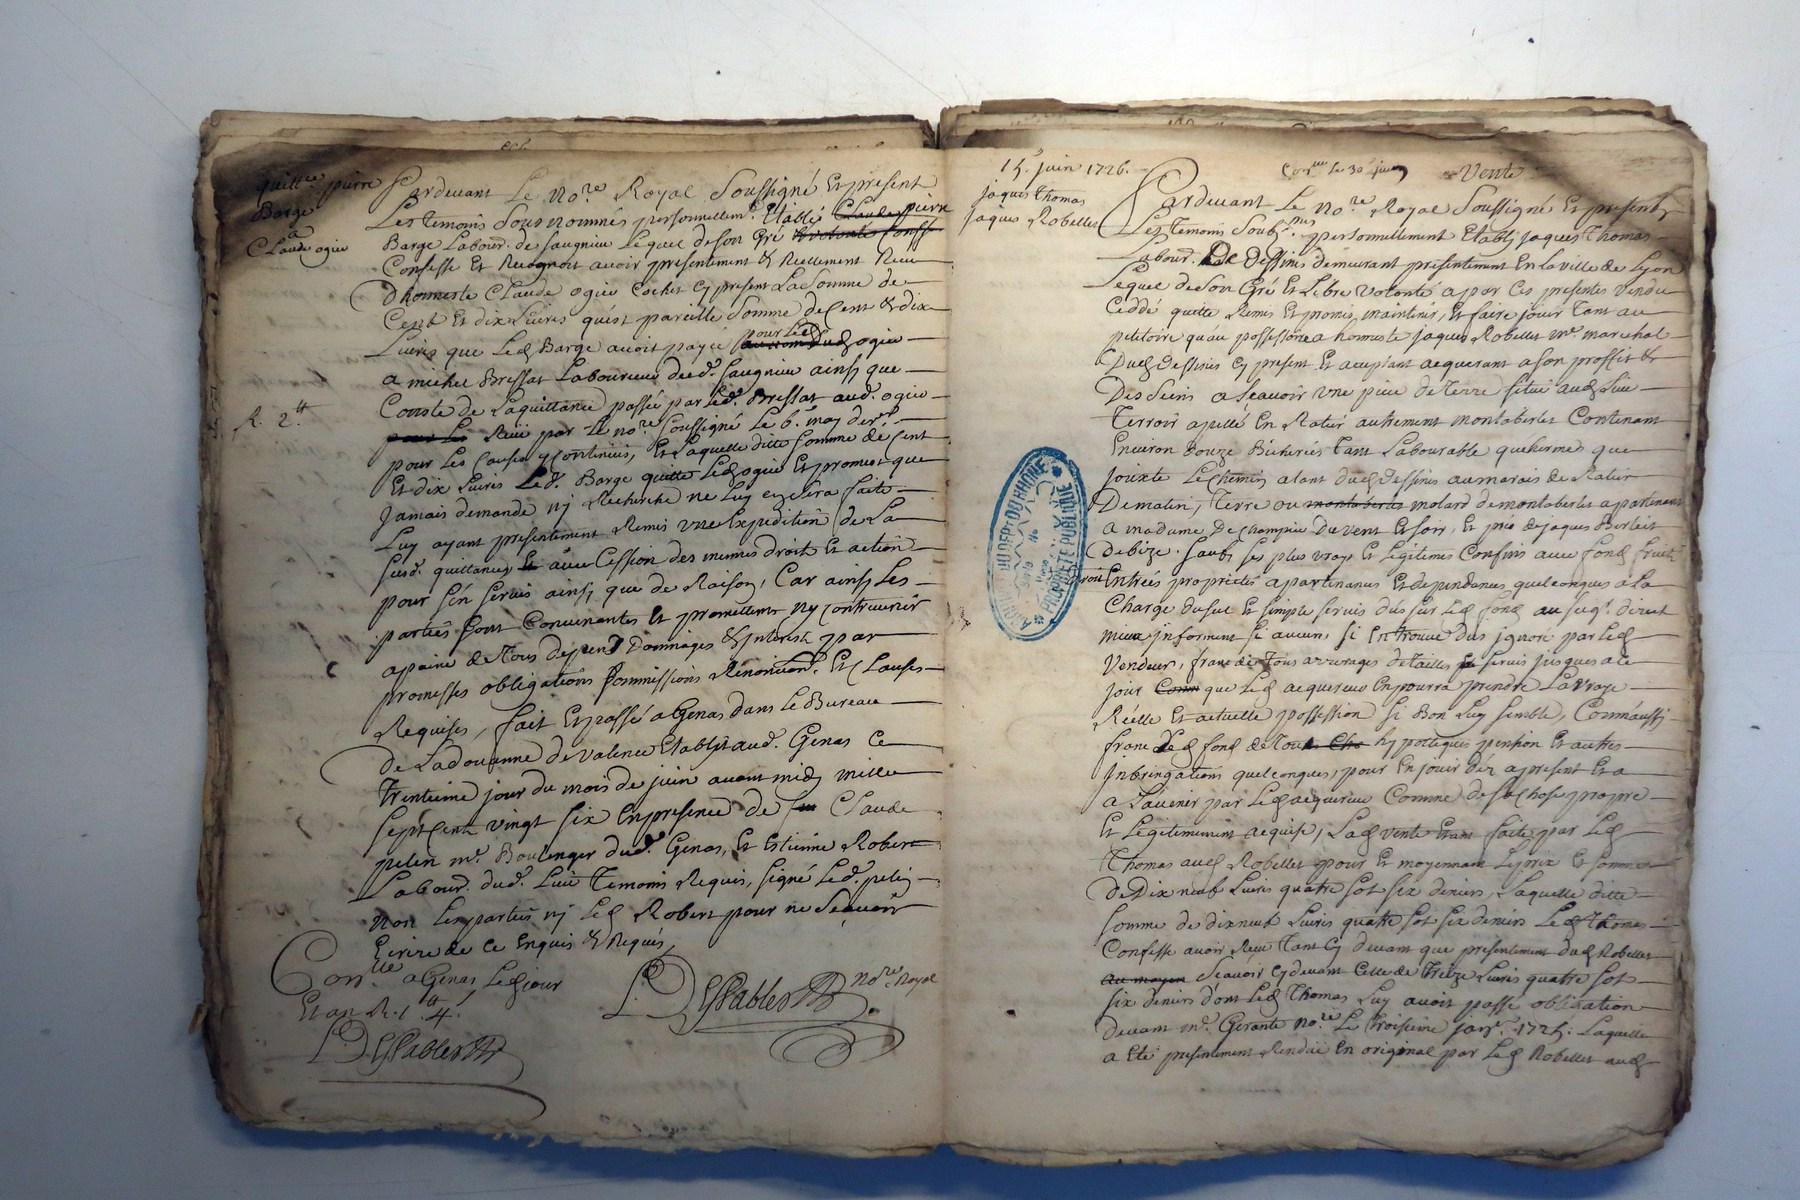 quitt.ce pierre
Barge
a
Claude ogier
Pardevant Le No.re Royal Soussigné Et present
Les Temoins Sousnommés personnellem.t Etably Claude pierre
Barge Labour. de Saugnieu Lequel de son Gré
Confesse Et Recognoit avoir presentement & Reellement Receu
d'honneste Claude ogier Cy present La Somme de
Cent Et dix Livres qu'est pareille Somme de Cent & dix
Livres que Led Barge avoit payée pour Led ogier
a michel Bressat Laboureur dud. Saugnieu ainsy que
Conste de La quittance passée par Led. Bressat aud. ogier
R. 2.tt
Receu par Le no.re Soussigné Le 6. may der.r
pour Les Causes y Contenues, Et Laquelle ditte Somme de Cent
Et dix Livres Led. Barge quitte Led ogier Et promest que
Jamais demande ny Recherche ne Luy en Sera faite
Luy ayant presentement Remis une Expedition de La
Susd. quittance avec Cession des memes droits Et action
pour s'en Servir ainsy que de Raison, Car ainsy Les
parties Sont Convenantes Et promettent n'y Contrevenir
a paine de Tous depend Dommages & Interest par
promesses obligations Soummissions Renontion.s Et Clauses
Requises, fait Et passé a Genas dans Le Bureau
de La doüanne de Valence Etably aud. Genas Ce
Trentieme jour du mois de juin avant midy mille
Sept Cent vingt Six En presence de Claude
pelin m.e Boulenger dud. Genas, Et Estienne Robert
Labour. dud. Lieu Temoins Requis, Signé Led. pelin
non Les parties ny Led Robert pour ne Sçavoir
Ecrire de Ce Enquis & Requis
Con.lle a Genas Led jour
Et an R. 1.tt 4.s
No.re Royal
15. juin 1726.
Con.lle le 30 juin
Vente
jaques Thomas
jaques Robellet
Pardevant Le No.re Royal Soussigné Et presents
Les Temoins Soub.nés personnellement Etably jaques Thomas
Labour. De Dessines demeurant présentement En La ville de Lyon
Lequel de Son Gré Et Libre Volonté a par Ces presentes vendu
Ceddé quitte Remis Et promis maintenir, Et faire jouir Tant au
petitoire qu'au possessoire a honneste jaques Robellet m.e marechal
Dud Dessines Cy present Et acceptant acquerant a Son proffit &
Des Siens a Sçavoir une piece de Terre Situé aud Lieu
Terroir apellé En Ratier autrement montaberlet Contenant
Environ Douze Bicherées Tant Labourable qu'hermes que
jouxte Le Chemin alant dud Dessines au marais de Ratier
De matin, Terre ou montaberlet molard de montaberlet apartenant
a madame De Champieu Du vent Et Soir, Et pré de jaques Berliet
de bize. Sauf Ses plus vrays Et Legitimes Confins avec fond fruits
droit Entrées proprietés apartenances Et dependances quelconques a La
Charge du Sue Et Simple Servis dus Sur Led fond au Seig.r direct
mieux informent Si aucuns Si En trouve dus ignoré par Led
Vendeur, franc de Tous arrerages de Tailles Servis jusques a Ce
jour que Led acquereur En pourra prendre La vraye
Réelle Et actuelle possession Si Bon Luy Semble, Comm'aussi
franc Led fond de Tous hypoteques pention Et autres
Inbringations quelconques, pour En jouir déz a present Et a
a L'avenir par Led acquereur Comme de Sa Chose propre
Et Legitimement acquise, Lad vente faite par Led
Thomas aud Robellet pour Et moyennant Le prix Et Somme
De Dix neuf Livres quatre Sol Six deniers, Laquelle ditte
Somme de dix neuf Livres quatre Sol Six deniers Led Thomas
Confesse avoir Receu Tant Cy devant que presentement dud Robellet
au moyen Sçavoir Cy devant Celle de Treize Livres quatre Sol
Six deniers d'ont Led Thomas Luy avoit passé obligation
devant m.e Gerante no.re Le Troisieme janv.r 1725. Laquelle
a Eté presentement Rendue En original par Led Robellet aud
PROPRIÉTÉ PUBLIQUE